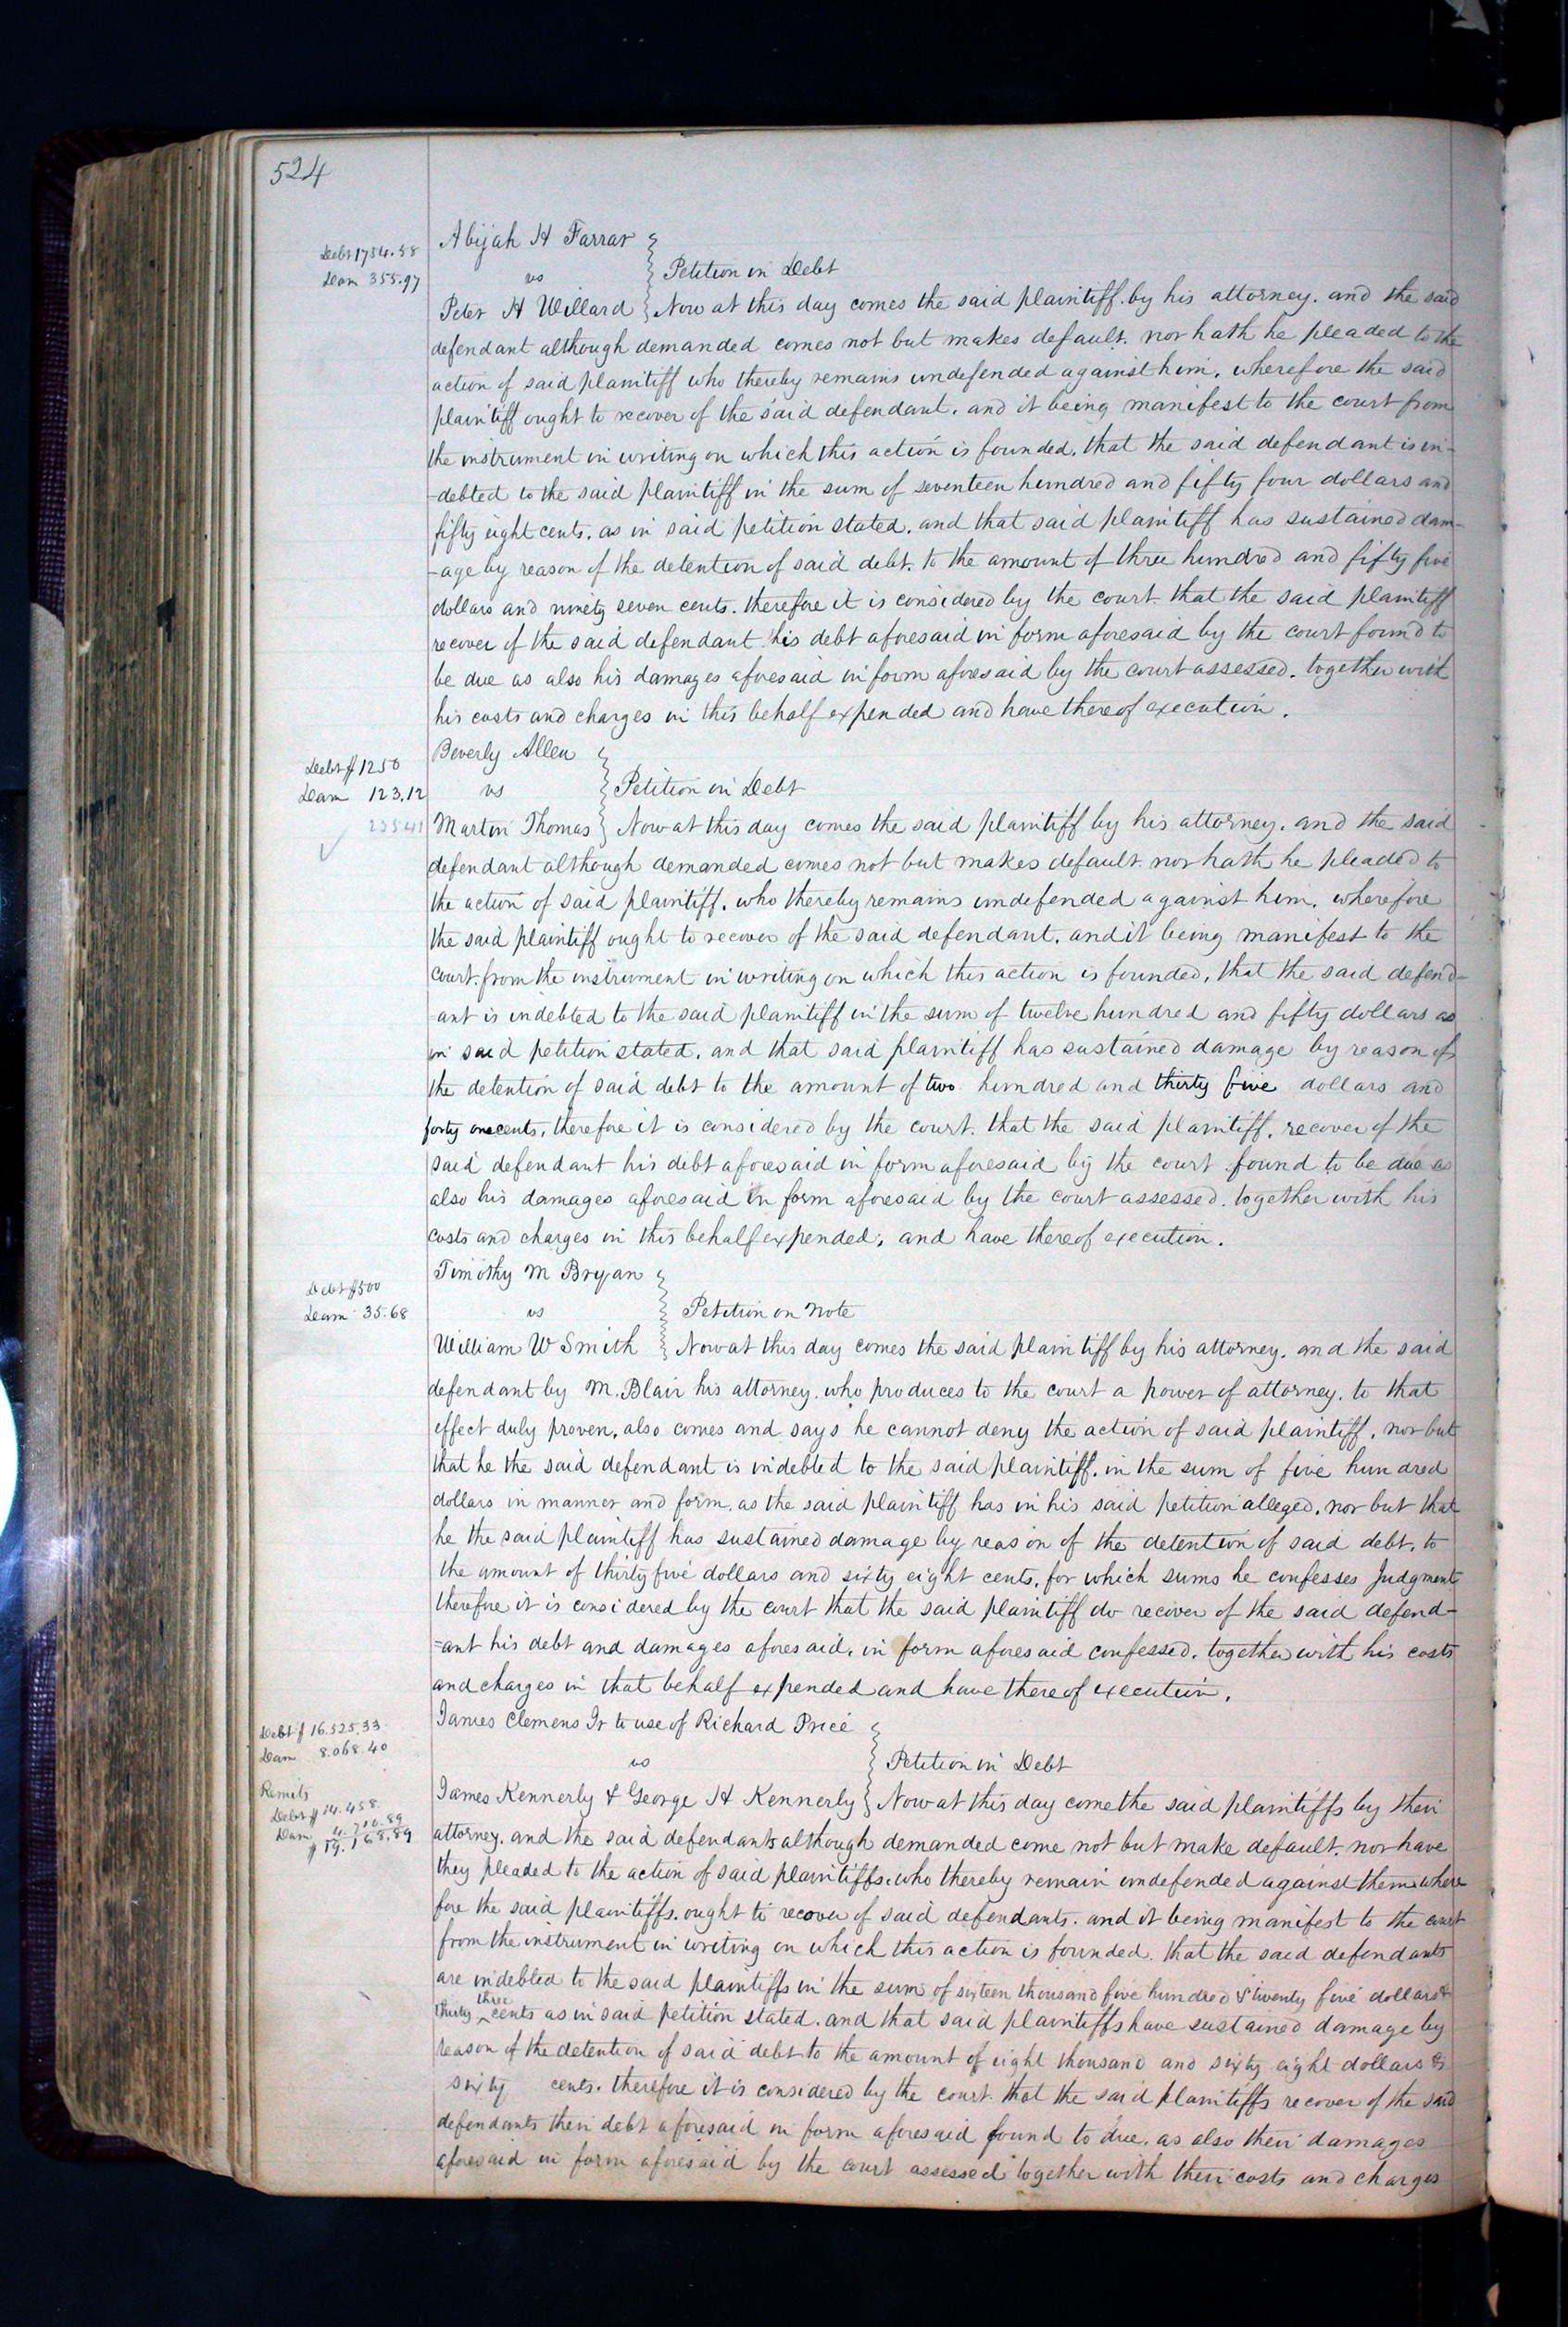 524
Abijah H Farrar
Debt 1754.58
Dam 355.97
vs
Petition in Debt
Peter H Willard } Now at this day comes the said plaintiff by his attorney. and the said
defendant although demanded comes not but makes default. nor hath he pleaded to the
action of said plaintiff who thereby remains undefended against him. wherefore the said
plaintiff ought to recover of the said defendant. and it being manifest to the court from
the instrument in writing on which this action is founded, that the said defendant is in-
-debted to the said plaintiff in the sum of seventeen hundred and fifty four dollars and
fifty eight cents. as in said petition stated. and that said plaintiff has sustained dam-
-age by reason of the detention of said debt. to the amount of three hundred and fifty five
dollars and ninety seven cents. therefore it is considered by the court that the said plaintiff
recover of the said defendant his debt aforesaid in form aforesaid by the court found to
be due as also his damages aforesaid in form aforesaid by the court assessed. together with
his costs and charges in this behalf expended and have thereof execution.
Beverly Allen
Debt $1250
Dam 123.12
vs
Petition in Debt
235.41
Martin Thomas } Now at this day comes the said plaintiff by his attorney. and the said
defendant although demanded comes not but makes default nor hath he pleaded to
the action of said plaintiff. who thereby remains undefended against him. wherefore
the said plaintiff ought to recover of the said defendant. and it being manifest to the
court from the instrument in writing on which this action is founded, that the said defend-
=ant is indebted to the said plaintiff in the sum of twelve hundred and fifty dollars as
in said petition stated. and that said plaintiff has sustained damage by reason of
the detention of said debt to the amount of two hundred and thirty five dollars and
forty one cents, therefore it is considered by the court. that the said plaintiff. recover of the
said defendant his debt aforesaid in form aforesaid by the court found to be due as
also his damages aforesaid in form aforesaid by the court assessed. together with his
costs and charges in this behalf expended, and have thereof execution.
Timothy M Bryan
Debt $500
Dam 35.68
vs
Petition on note
William W Smith } Now at this day comes the said plaintiff by his attorney. and the said
defendant by M. Blair his attorney. who produces to the court a power of attorney. to that
effect duly proven, also comes and says he cannot deny the action of said plaintiff. nor but
that he the said defendant is indebted to the said plaintiff. in the sum of five hundred
dollars in manner and form, as the said plaintiff has in his said petition alleged. nor but that
he the said plaintiff has sustained damage by reason of the detention of said debt, to
the amount of thirty five dollars and sixty eight cents, for which sums he confesses Judgment
therefore it is considered by the court that the said plaintiff do recover of the said defend-
=ant his debt and damages aforesaid, in form aforesaid confessed. together with his costs
and charges in that behalf expended and have thereof execution.
James Clemens Jr to use of Richard Price
Debt $ 16.525.33
Dam 8.068.40
vs
Petition in Debt
Remits
Debt $ 14.458.
Dam 4.710.89
$ 19.168.89
James Kennerly & George H Kennerly } Now at this day come the said plaintiffs by their
attorney. and the said defendants although demanded come not but make default. nor have
they pleaded to the action of said plaintiffs. who thereby remain undefended against them. where
fore the said plaintiffs. ought to recover of said defendants. and it being manifest to the court
from the instrument in writing on which this action is founded. that the said defendants
are indebted to the said plaintiffs in the sum of sixteen thousand five hundred & twenty five dollars &
thirty three cents as in said petition stated. and that said plaintiffs have sustained damage by
reason of the detention of said debt to the amount of eight thousand and sixty eight dollars &
sixty cents. therefore it is considered by the court. that the said plaintiffs recover of the said
defendants their debt aforesaid in form aforesaid found to due. as also their damages
aforesaid in form aforesaid by the court assessed together with their costs and charges